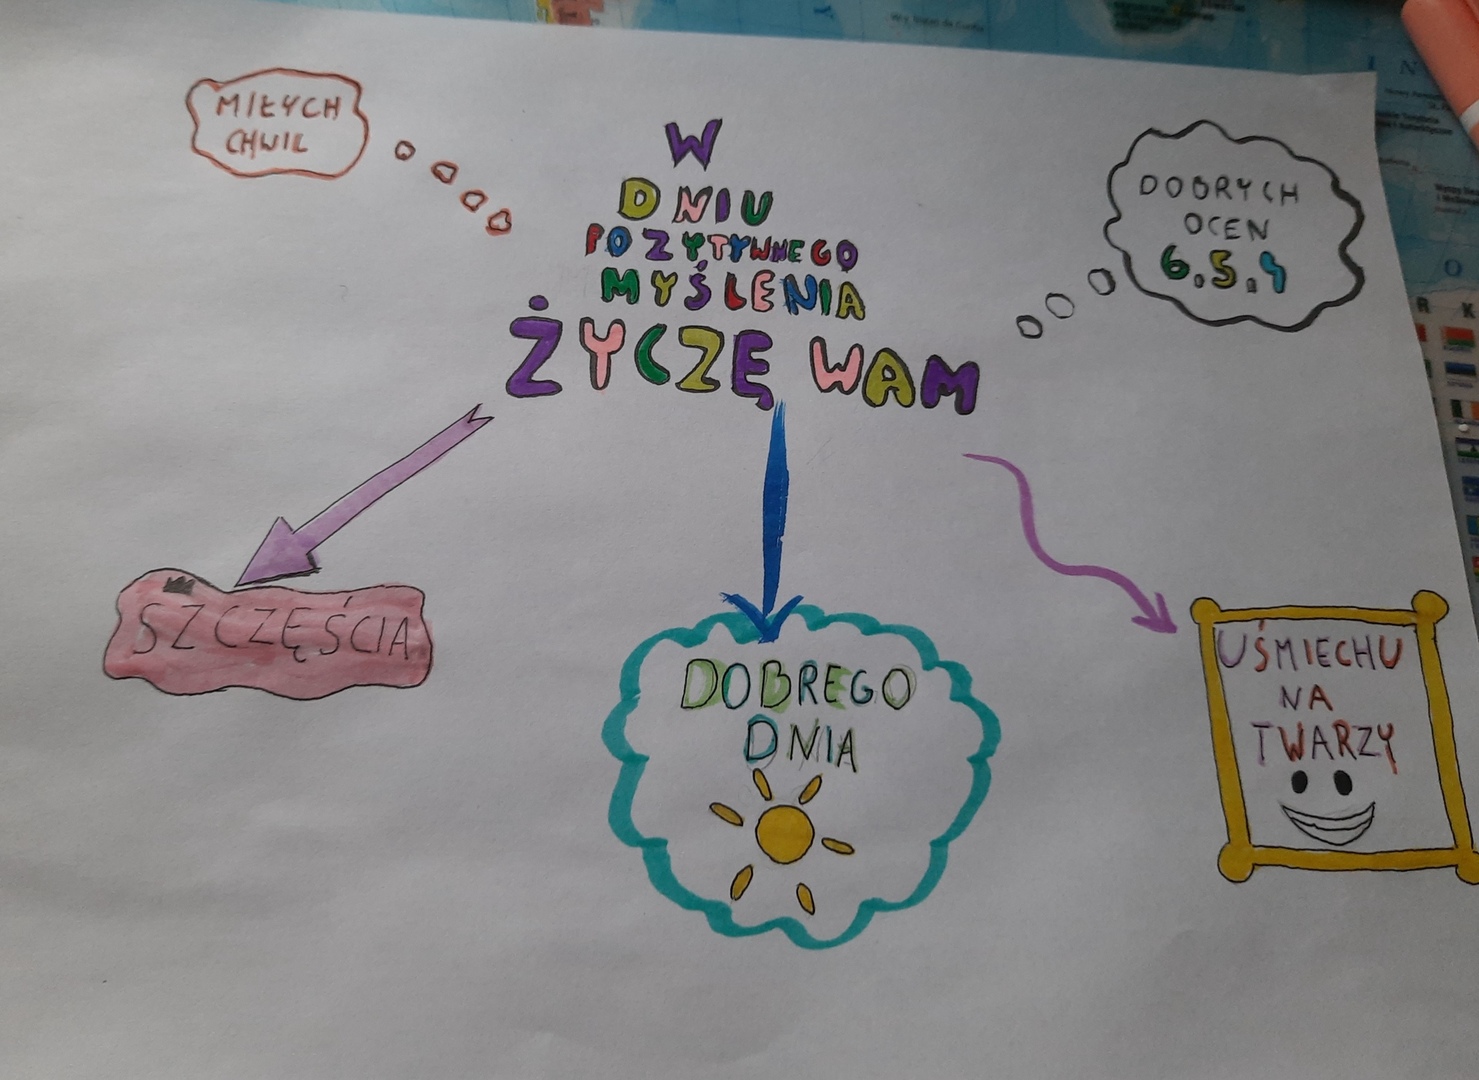 MIŁYCH
CHWIL
W
DNIU
POZYTYWNEGO
MYŚLENIA
ŻYCZĘ WAM
DOBRYCH
OCEN
6.5.4
SZCZĘŚCIA
DOBREGO
DNIA
UŚMIECHU
NA
TWARZY